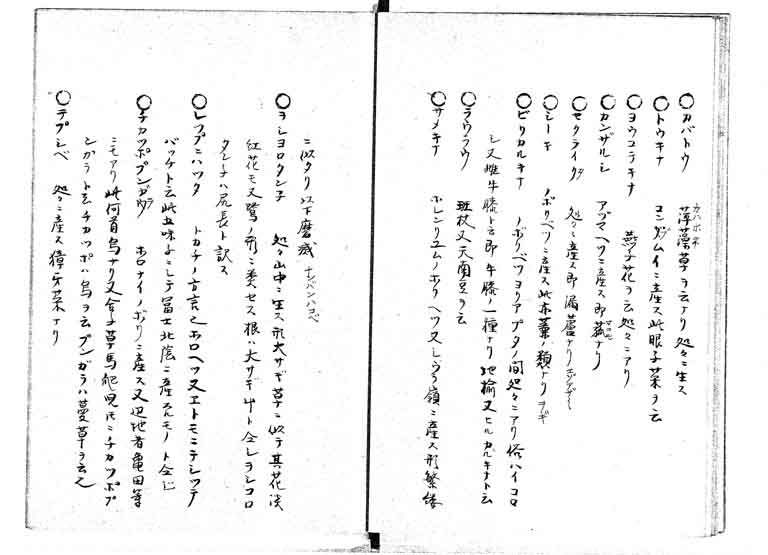 ○カバトウ 萍蓬草ヲ云ナリ 処々ニ生ス
カハホネ
○トウキナ コンダムイニ産ス此眼子菜ヲ云
○ヨウコテキナ 燕子花ヲ云処々ニアリ
○カンザルシ アブマヘツニ産ス即 ナリ
○セタライタ 処々ニ産ス即漏蘆ナリ
○シーキ ノボリベツニ産ス此 ノ類ナリ ヲギ
○ビリカルキナ ノボリベツヨリアブタノ間処々ニアリ俗ハイコロ
シ又雌牛膝ト云即牛膝ノ一種ナリ地楡又ヒルガルキナト云
○ラウラウ 斑杖又天南豆ヲ云
○サメキナ ホレンリユムノホクヘツ又シララ嶺ニ産ス形繁縷
ニ似タリ以下磨滅 ナンバンハコベ
○ヲシヨロクンチ 処々山中ニ生ス形大サギ草ニ似テ其花淡
紅花モ又鷺ノ形ニ類セス根ハ大サギ ト仝シヲシコロ
クンチハ尻長ト訳ス
○レプニハツク トカチノ方言也ホロヘツ又エトモニテレツテ
バツケト云此五味子ニシテ冨士北陰ニ産スルモノト仝じ
○チカツポプンガラ ホロナイノボリニ産ス又辺地者亀田等
ニモアリ此何首烏ナリ又合子草馬 児氏ニチカツポプ
ンガラト云チカツポハ鳥ヲ云プンガラハ蔓草ヲ云也
○テプシベ 処々ニ産ス獐牙菜ナリ